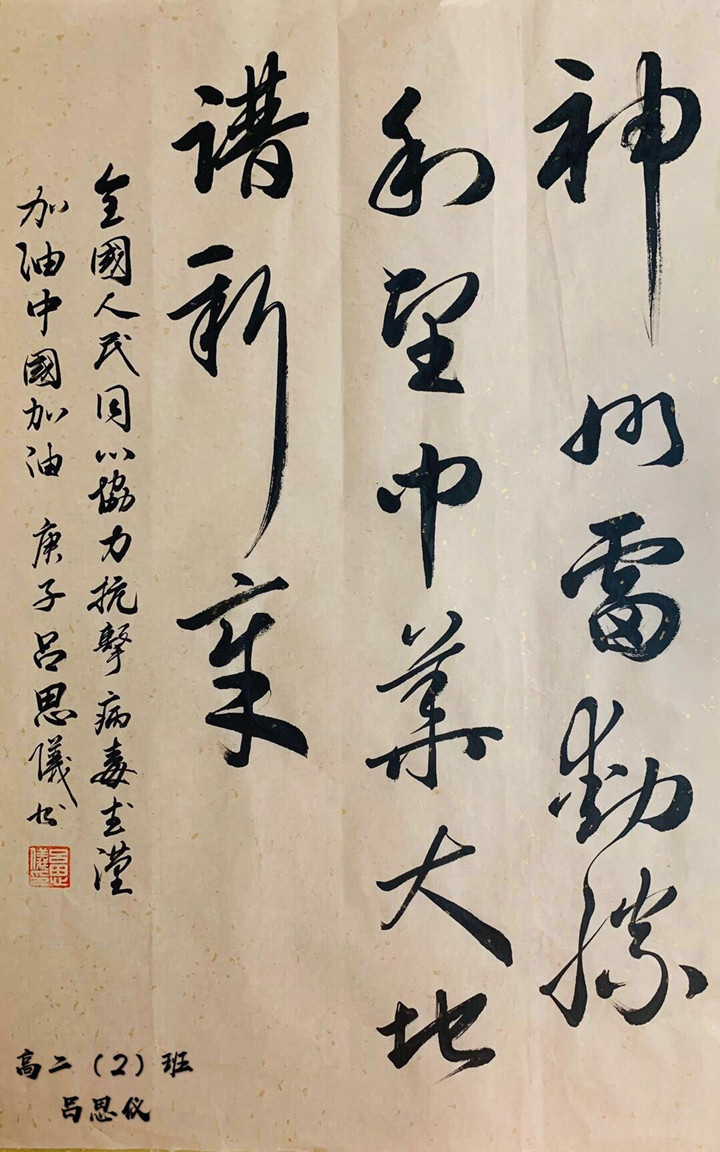 神州雷動勝
利望中華大地
譜新章
全國人民同心協力抗擊病毒武漢
加油中國加油 庚子吕思儀书
高二（2）班
吕思仪